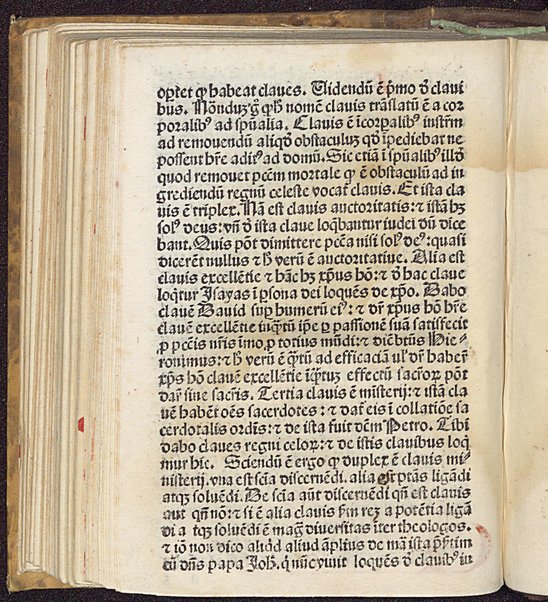 oportet ꝙ habeat claues. Uidendū ē p̄mo d̄ claui
bus. Nōnduz g̊ ꝙ h̓ nomē clauis trāslatū ē a cor
poralib⁹ ad spūalia. Clauis ē ī corpalib⁹ instrm̄
ad remouendū aliqd̓ obstaculuz qd̓ īpediebat ne
possent hr̄e adit⁹ ad domū. Sic etiā ī spūalib⁹ illd̓
quod remouet pctm̄ mortale ꝙ ē obstaculū ad in
grediendū regnū celeste vocat᷑ clauis. Et ista cla
uis ē triplex. Nā est clauis auctoritatis: ⁊ istā hz
sol⁹ deus: vn̄ d̄ ista claue loq̄bantur iudei dū dice
bant. Quis pōt dimittere pctā nisi sol⁹ de⁹: quasi
dicerēt nullus ⁊ h̓ verū ē auctoritatiue. Alia est
clauis excellētie ⁊ hāc hz xp̄us hō: ⁊ d̄ hac claue
loq̄tur Isayas ī ꝑsona dei loquēs de xp̄o. Dabo
clauē Dauid suꝑ humerū ei⁹: ⁊ dr̄ xp̄us hō hr̄e
clauē excellētie inq̄tū ip̄e ꝑ passionē suā satisfecit
ꝓ pctīs nr̄is imo ꝓ totius mūdi: ⁊ dic̄ btūs Hie-
ronimus: ⁊ h̓ verū ē q̄tū ad efficaciā vl̓ dr̄ haber̄
xp̄s hō clauē excellētie īq̄tuz effectū sacror̄ pōt
dar̄ sine sacr̄is. Tertia clauis ē mīsterij: ⁊ istā cla
uē habēt oēs sacerdotes: ⁊ dat᷑ eis ī collatiōe sa
cerdotalis ordīs: ⁊ de ista fuit dc̄m Petro. Tibi
dabo claues regni celoꝝ: ⁊ de istis clauibus loq̄
mur hic. Sciendū ē ergo ꝙ duplex ē clauis mi
nisterij. vna est sciā discernēdi. alia est ptās ligādi
atqꝫ soluēdi. De sciā aūt discernēdi qn̄ est clauis
aut qn̄ nō: ⁊ si ē alia clauis a potētia ligā
di atqꝫ soluēdi ē maḡ diuersitas iter theologos.
⁊ iō non dico aliqd aliud āplius de mā ista
cū dn̄s papa Joh̓. q̄ nūc viuit loquēs d̄ clauib⁹ in